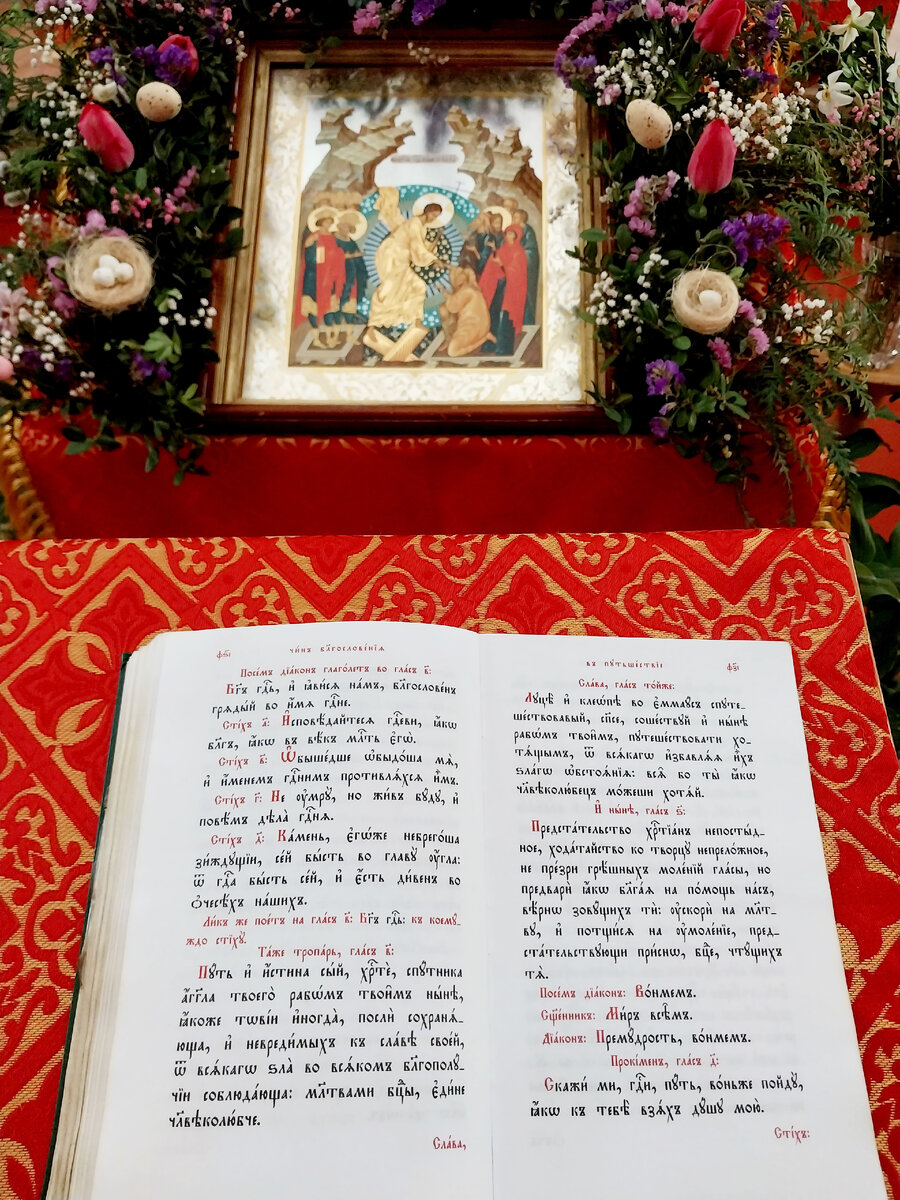 чи́нъ бл҃гослове́нїѧ
Посе́мъ дїа́конъ глаго́летъ во гла́съ в҃:
Бг҃ъ гдⷭ҇ь, и҆ ꙗ҆ви́сѧ на́мъ, бл҃гослове́нъ
грѧды́й во и҆́мѧ гдⷭ҇не.
Сті́хъ а҃: И҆сповѣ́дайтесѧ гдⷭ҇еви, ꙗ҆́кѡ
бл҃гъ, ꙗ҆́кѡ въ вѣ́къ млⷭ҇ть є҆гѡ̀.
Сті́хъ в҃: Ѡ҆быше́дше ѡ҆быдо́ша мѧ̀,
и҆ и҆́менемъ гдⷭ҇нимъ противлѧ́хсѧ и҆̀мъ.
Сті́хъ г҃: Не ᲂу҆мрꙋ̀, но жи́въ бꙋ́дꙋ, и҆
повѣ́мъ дѣла̀ гдⷭ҇нѧ.
Сті́хъ д҃: Ка́мень, є҆го́же небрего́ша
зи́ждꙋщїи, се́й бы́сть во главꙋ̀ ᲂу҆́гла:
ѿ гдⷭ҇а бы́сть се́й, и҆ є҆́сть ди́венъ во
ѻ҆чесѣ́хъ на́шихъ.
Ли́къ же пое́тъ на гла́съ в҃: Бг҃ъ гдⷭ҇ь: къ коемꙋ́_
ждо стїхꙋ̀.
Та́же тропа́рь, гла́съ в҃:
Пꙋ́ть и҆ и҆́стина сы́й, хрⷭ҇тѐ, спꙋ́тника
а҆́гг҃ла твоего̀ рабѡ́мъ твои̑мъ ны́нѣ,
ꙗ҆́коже тѡві́и и҆ногда̀, послѝ сохранѧ́_
юща, и҆ невреди́мыхъ къ сла́вѣ свое́й,
ѿ всѧ́кагѡ ѕла̀ во всѧ́комъ бл҃гополꙋ́_
чїи соблюда́юща: мл҃твами бцⷣы, є҆ди́не
чл҃вѣколю́бче.
Сла́ва,
въ пꙋтьше́ствїе
Сла́ва, гла́съ то́йже:
Лꙋцѣ̀ и҆ клеѡ́пѣ во є҆ммаꙋ́съ спꙋте_
ше́ствовавый, сп҃се, соше́ствꙋй и҆ ны́нѣ
рабѡ́мъ твои̑мъ, пꙋтеше́ствовати хо_
тѧ́щымъ, ѿ всѧ́кагѡ и҆збавлѧ́ѧ и҆̀хъ
ѕла́гѡ ѡ҆бстоѧ́нїѧ: всѧ̑ бо ты̀ ꙗ҆́кѡ
чл҃вѣколю́бецъ мо́жеши хотѧ́й.
И҆ ны́нѣ, гла́съ ѕ҃:
Предста́тельство хрⷭ҇тїа́нъ непосты́д_
ное, хода́тайство ко творцꙋ̀ непрело́жное,
не пре́зри грѣ́шныхъ моле́нїй гла́сы, но
предварѝ ꙗ҆́кѡ бл҃га́ѧ на по́мощь на́съ,
вѣ́рнѡ зовꙋ́щихъ тѝ: ᲂу҆скорѝ на мл҃т_
вꙋ, и҆ потщи́сѧ на ᲂу҆моле́нїе, пред_
ста́тельствꙋющи при́снѡ, бцⷣе, чтꙋ́щихъ
тѧ̀.
Посе́мъ дїа́конъ: Во́нмемъ.
Сщ҃е́нникъ: Ми́ръ всѣ̑мъ.
Дїа́конъ: Премꙋ́дрость, во́нмемъ.
Проки́менъ, гла́съ д҃:
Скажи́ ми, гдⷭ҇и, пꙋ́ть, во́ньже пойдꙋ̀,
ꙗ҆́кѡ къ тебѣ̀ взѧ́хъ дꙋ́шꙋ мою̀.
Сті́хъ: